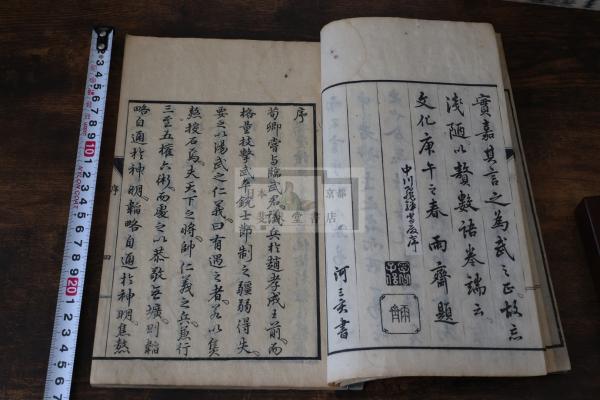 實嘉其言之為武之正故忘
淺陋以贅數語卷端云
文化庚午之春 雨齋題
河三亥書
序
荀卿嘗與臨武君議兵於趙孝成王前而
格量技擊武卒銳士節制之彊弱得失
要之以湯武之仁義曰有遇之者若以焦
熬投石焉夫天下之將帥仁義之兵無行
三至五權六術而處之以恭敬無壙則
略自通於神明韜略自通於神明隻熬
序
四
日本 京都
堂書店